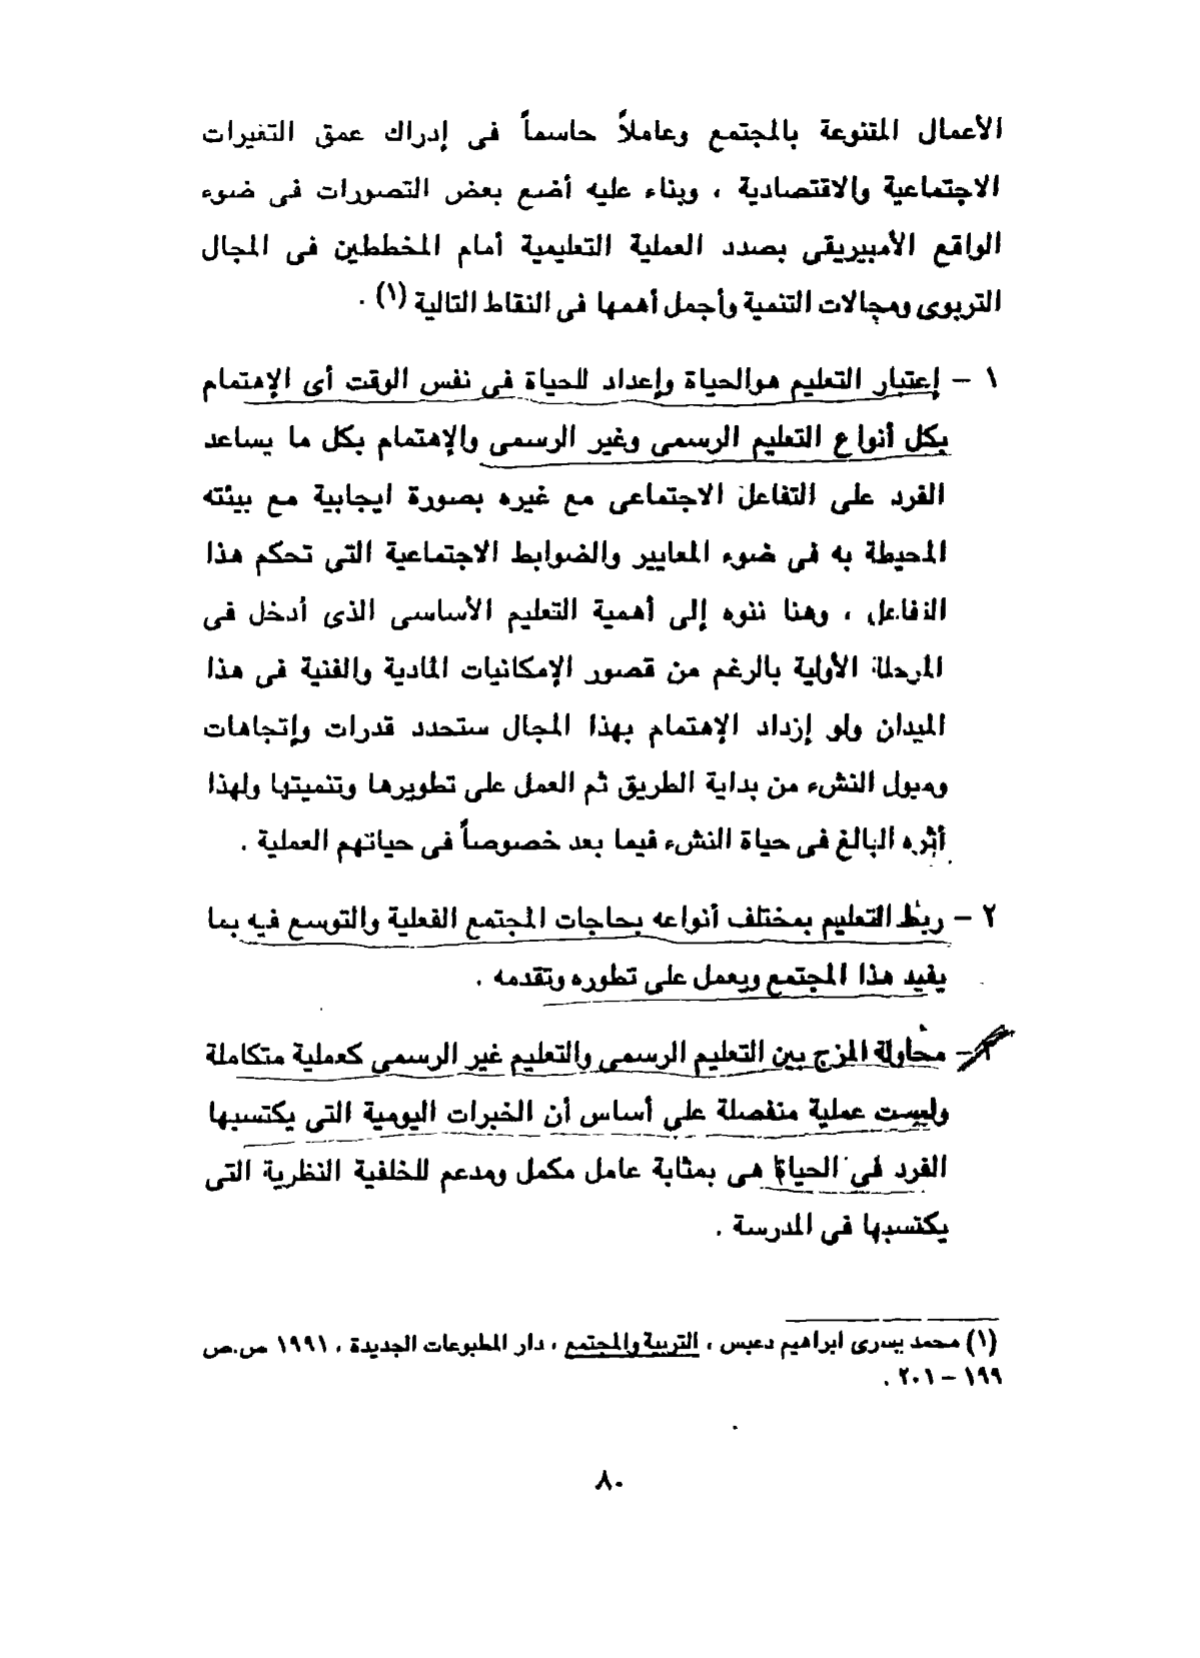 الأعمال المتنوعة بالمجتمع وعاملاً حاسماً فى إدراك عمق التغيرات
الاجتماعية والاقتصادية ، وبناء عليه أضع بعض التصورات فى ضوء
الواقع الأمبيريقى بصدد العملية التعليمية أمام المخططين فى المجال
التربوى ومجالات التنمية وأجمل أهمها فى النقاط التالية (١) .
١ – إعتبار التعليم هوالحياة وإعداد للحياة فى نفس الوقت أى الإهتمام
بكل أنواع التعليم الرسمى وغير الرسمى والإهتمام بكل ما يساعد
الفرد على التفاعل الاجتماعى مع غيره بصورة ايجابية مع بيئته
المحيطة به فى ضوء المعايير والضوابط الاجتماعية التى تحكم هذا
التفاعل ، وهنا ننوه إلى أهمية التعليم الأساسى الذى أدخل فى
المرحلة الأولية بالرغم من قصور الإمكانيات المادية والفنية فى هذا
الميدان ولو إزداد الإهتمام بهذا المجال ستحدد قدرات وإتجاهات
وميول النشء من بداية الطريق ثم العمل على تطويرها وتنميتها ولهذا
أثره البالغ فى حياة النشء فيما بعد خصوصاً فى حياتهم العملية .
٢ – ربط التعليم بمختلف أنواعه بحاجات المجتمع الفعلية والتوسع فيه بما
يفيد هذا المجتمع ويعمل على تطوره وتقدمه .
٣ – محاولة المزج بين التعليم الرسمى والتعليم غير الرسمى كعملية متكاملة
وليست عملية منفصلة على أساس أن الخبرات اليومية التى يكتسبها
الفرد فى الحياة هى بمثابة عامل مكمل ومدعم للخلفية النظرية التى
يكتسبها فى المدرسة .
(١) محمد يسرى ابراهيم دعبس ، التربية والمجتمع ، دار المطبوعات الجديدة ، ١٩٩١ ص.ص
١٩٩ – ٢٠١ .
٨٠